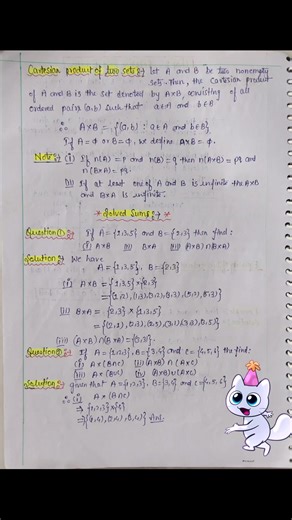 Cartesian product of two sets:- Let A and B be two nonempty
sets. Then, the Cartesian product
of A and B is the set denoted by A×B, consisting of all
ordered pairs (a,b) such that a∈A and b∈B
∴ A×B = {(a,b) : a∈A and b∈B}
If A = Φ or B = Φ, we define A×B = Φ.
Note:- (i) If n(A) = p and n(B) = q then n(A×B) = pq and
n(B×A) = pq.
(ii) If at least one of A and B is infinite the A×B
and B×A is infinite.
* Solved Sums:- *
Question(1):- If A = {1,3,5} and B = {2,3} then find:
(i) A×B (ii) B×A (iii) (A×B)∩(B×A)
Solution:- We have
A = {1,3,5}, B = {2,3}
(i) A×B = {1,3,5}×{2,3}
= {(1,2), (1,3), (3,2), (3,3), (5,2), (5,3)}
(ii) B×A = {2,3} × {1,3,5}
= {(2,1), (2,3), (2,5), (3,1), (3,3), (3,5)}
(iii) (A×B)∩(B×A) = {(3,3)}.
Question:- If A = {1,2,3}, B = {3,4} and C = {4,5,6} the find:
(i) A×(B∩C) (ii) (A×B)∩(A×C)
(iii) A×(B∪C) (iv) (A×B)∪(A×C)
Solution:- given that A = {1,2,3}, B = {3,4} and C = {4,5,6}
∴ (i) A×(B∩C)
⇒ {1,2,3}×{4}
⇒ {(1,4), (2,4), (3,4)}